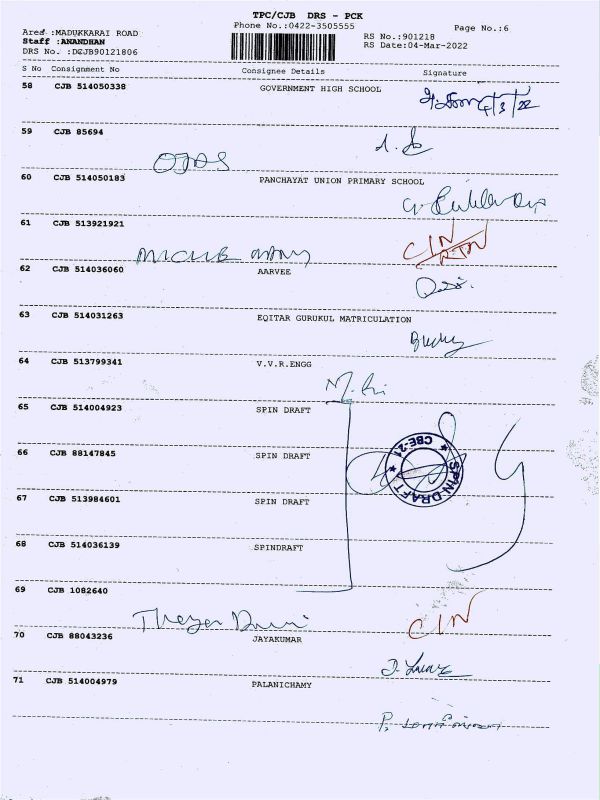 TPC/CJB DRS - PCK
Phone No.:0422-3505555
Page No.:6
Area :MADUKKARAI ROAD
RS No.:901218
Staff :ANANDHAN
RS Date:04-Mar-2022
DRS No. :DCJB90121806
S No Consignment No Consignee Details Signature
58 CJB 514050338 GOVERNMENT HIGH SCHOOL
4/3/22
59 CJB 85694
60 CJB 514050183 PANCHAYAT UNION PRIMARY SCHOOL
61 CJB 513921921
CIN
62 CJB 514036060 AARVEE
63 CJB 514031263 EQITAR GURUKUL MATRICULATION
64 CJB 513799341 V.V.R.ENGG
65 CJB 514004923 SPIN DRAFT
66 CJB 88147845 SPIN DRAFT
SPIN DRAFT CBE-21
67 CJB 513984601 SPIN DRAFT
68 CJB 514036139 SPINDRAFT
69 CJB 1082640
CIN
70 CJB 88043236 JAYAKUMAR
71 CJB 514004979 PALANICHAMY